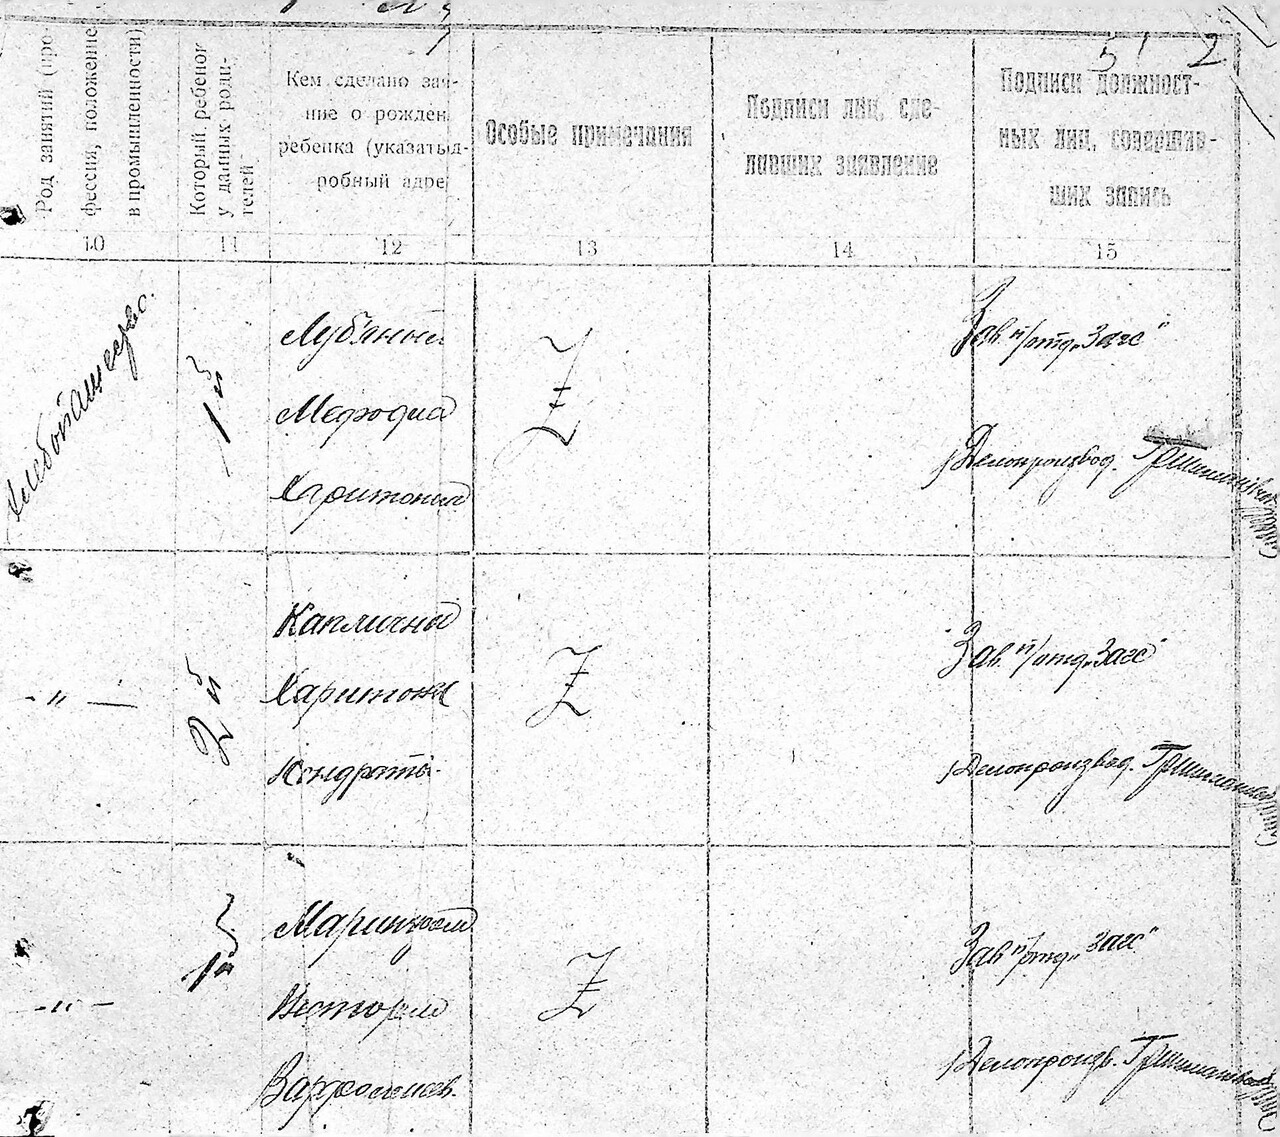 5 2
Род занятий (про-
фессия, положение
в промышленности)
Который ребенок
у данных роди-
телей
Кем сделано зая-
ние о рожден
ребенка (указатьпд-
робный адре
Особые примечания
Подписи лиц, сде-
лавших заявление
Подписи должност-
ных лиц, совершав-
ших запись
10 11 12 13 14 15
Хлебопашество.
1й
Лубяный
Мефодий
Харитонов
Z
Зав. п/отд. „Загс"
Делопроизвод.
-"-
2й
Капличный
Харитон
Кондрать.
Z
Зав. п/отд. „Загс"
Делопроизвод.
-"-
1й
Нестором
Варфоломеев.
Z
Зав. п/отд. „Загс"
Делопроизв.